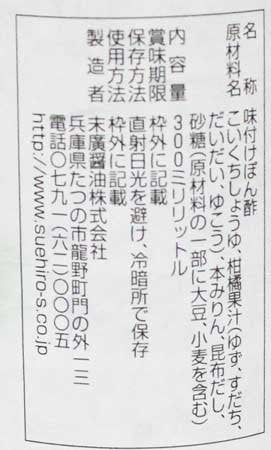 名　称　味付けぽん酢
原材料名　こいくちしょうゆ、柑橘果汁(ゆず、すだち、
だいだい、ゆこう)、本みりん、昆布だし、
砂糖(原材料の一部に大豆、小麦を含む)
内容量　300ミリリットル
賞味期限　枠外に記載
保存方法　直射日光を避け、冷暗所で保存
使用方法　枠外に記載
製造者　末廣醤油株式会社
兵庫県たつの市龍野町門の外一三
電話〇七九一(六二)〇〇〇五
http://www.suehiro-s.co.jp